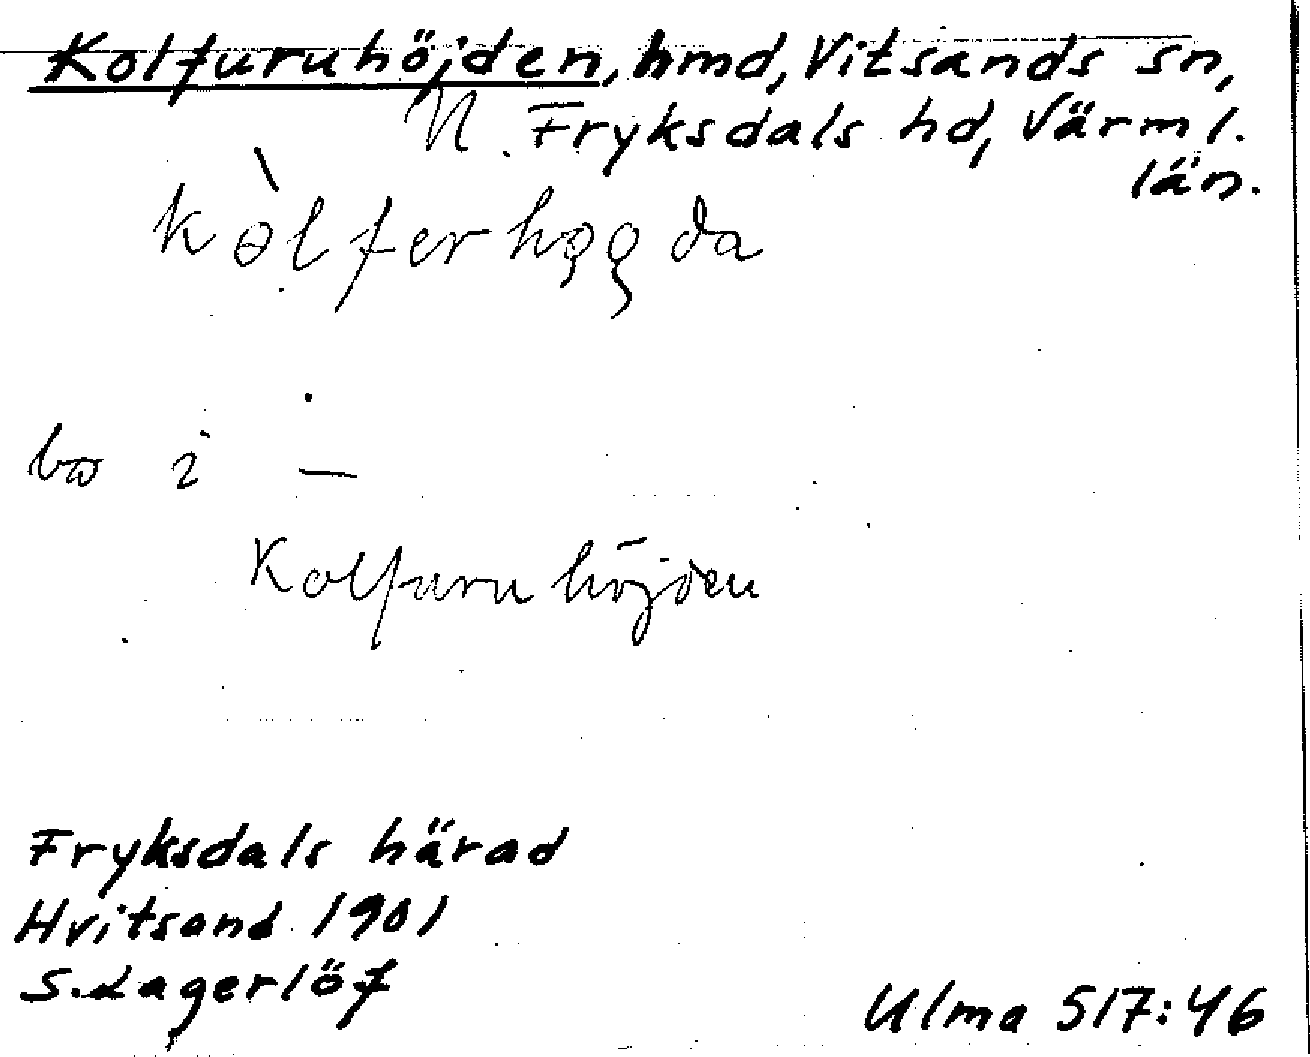 Kolfuruhöjden, hmd, Vitsands sn,
N. Fryksdals hd, Värml.
län.
kɵ̀lferhǫgda
bo i —
Kolfuruhöjden
Fryksdals härad
Hvitsand 1901
S. Lagerlöf
Ulma 517:46